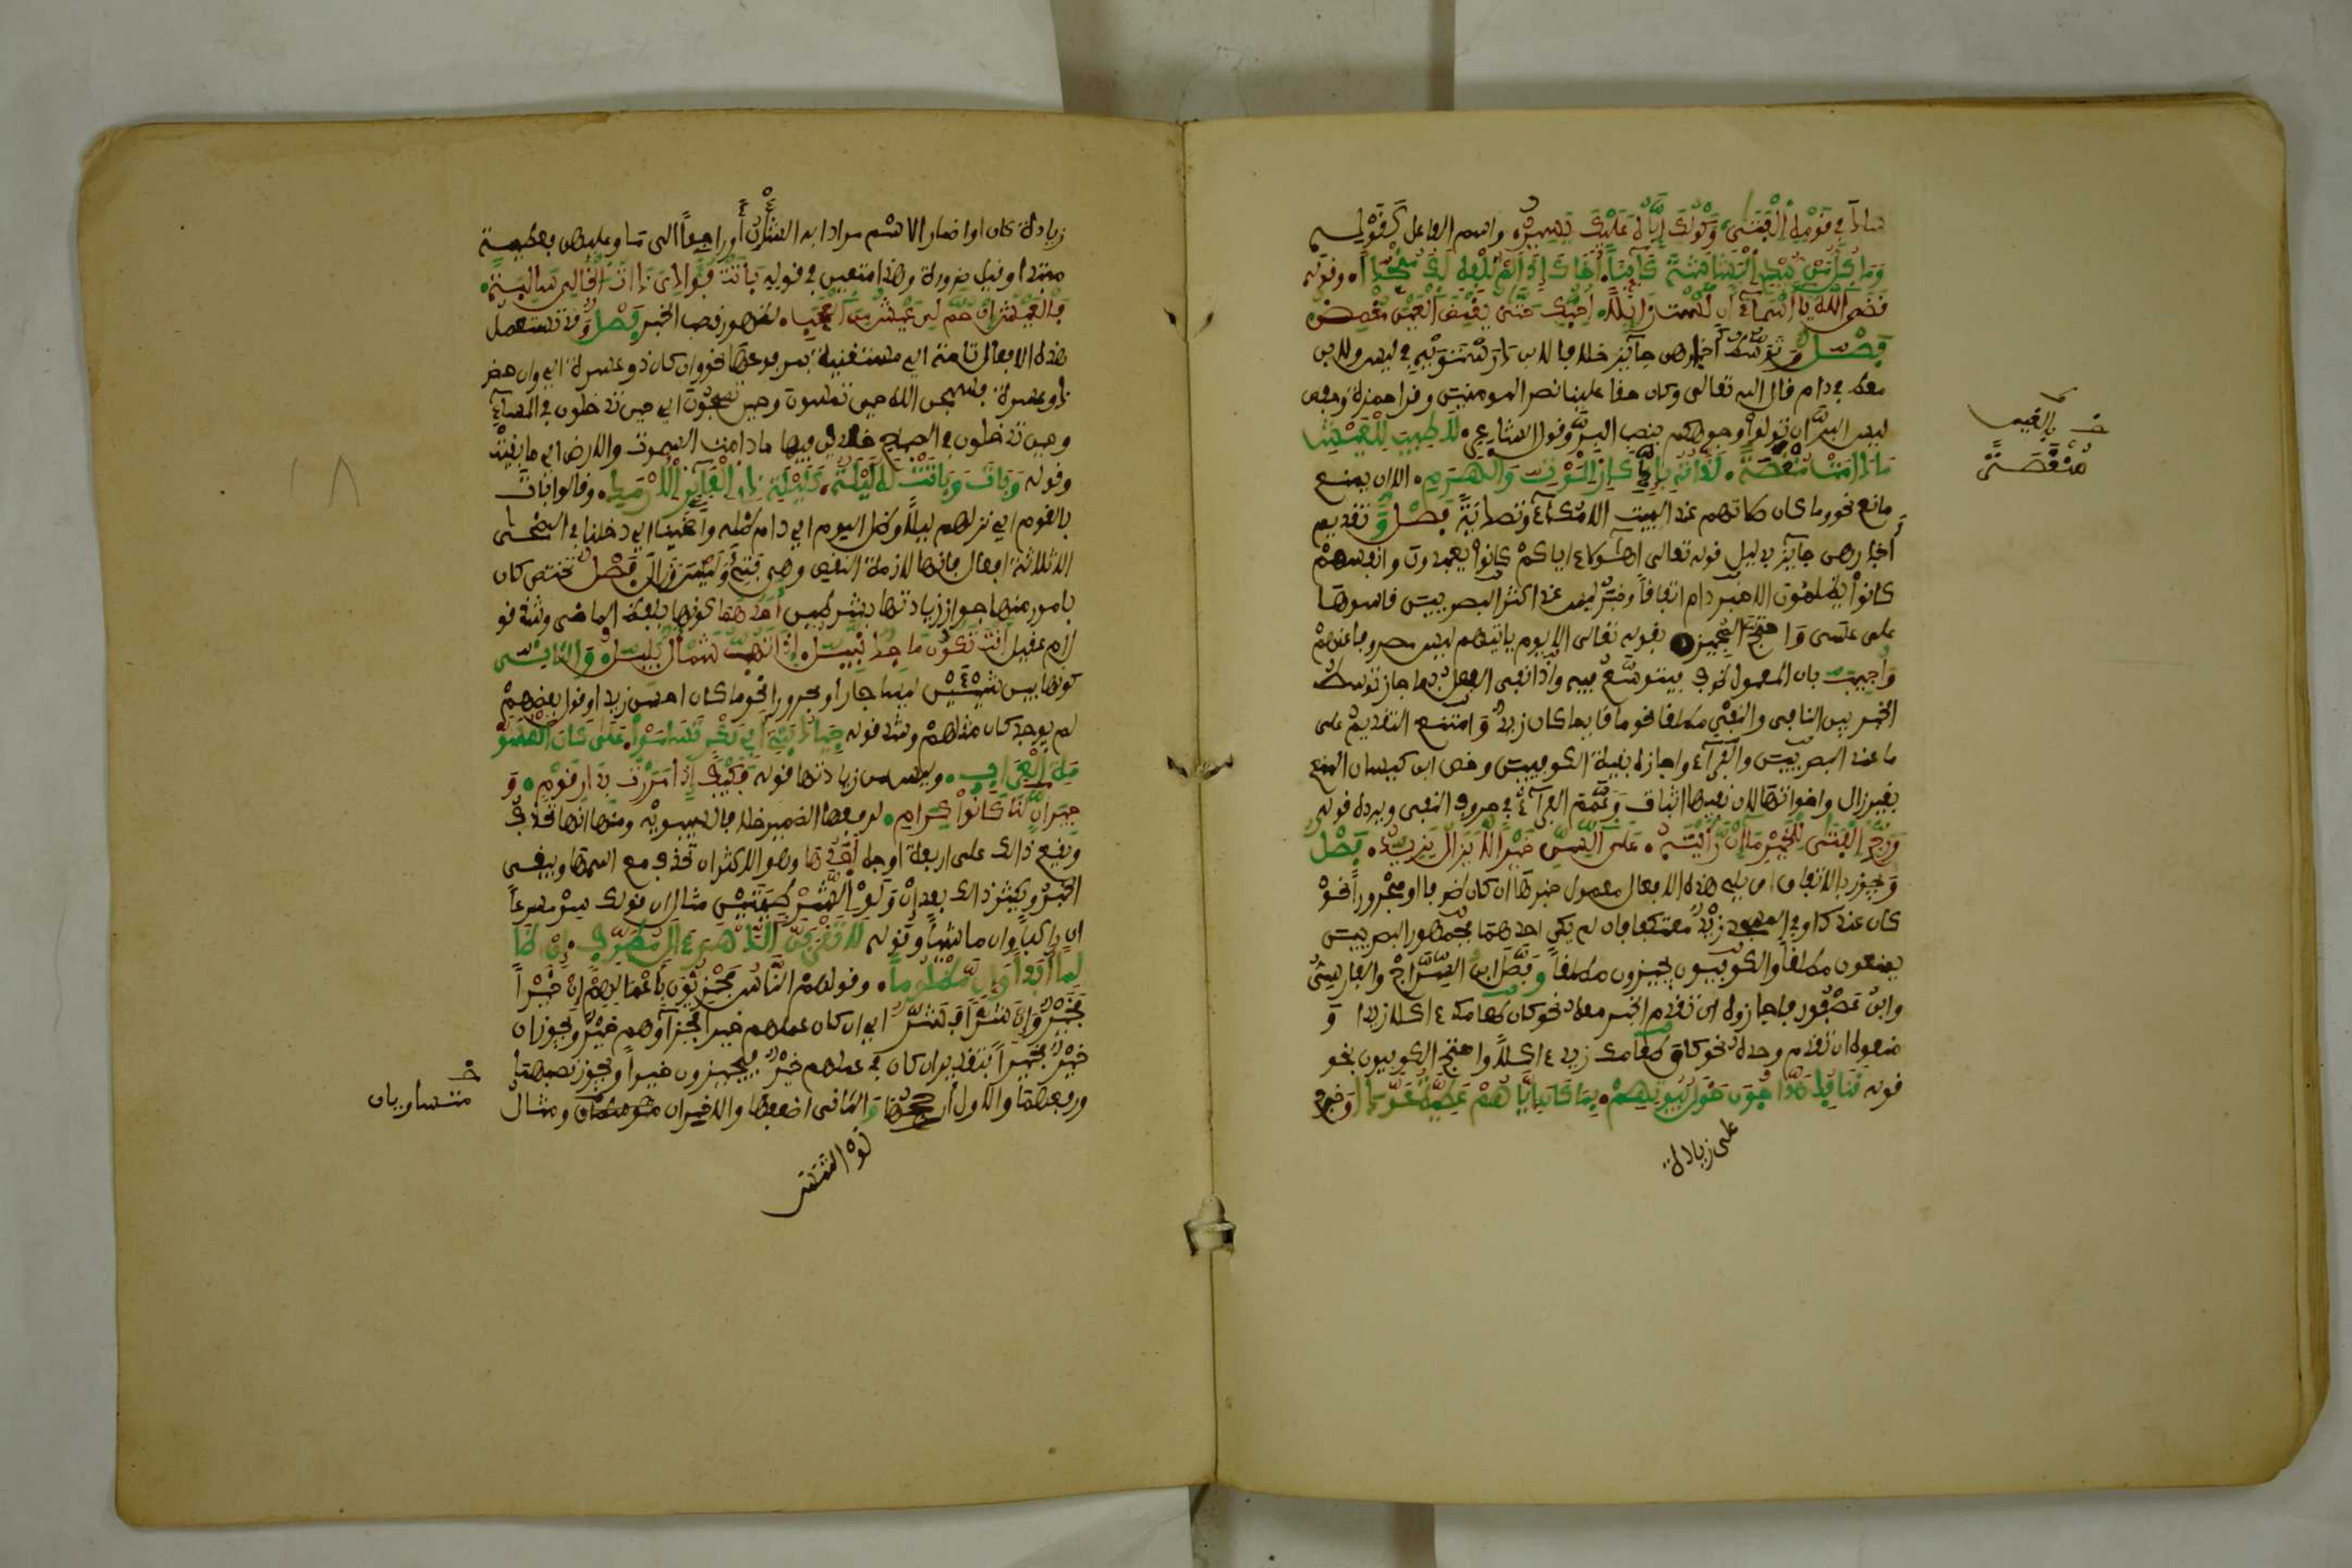 ساد في قومه الفتى وكونك إياه عليك يسير واسم الفاعل كقوله
وما كل من يبدي البشاشة كائنا أخاك إذا لم تلفه لك منجدا وقوله
قضى الله يا أسماء أن لست زائلا أحبك حتى يغمض العين مغمض
فصل وتوسط أخبارهن جايز خلافا لابن درستويه في ليس ولابن
معط في دام قال الله تعالى وكان حقا علينا نصر المومنين وقرا حمزة وحفص
ليس البر ان تولوا وجوهكم بنصب البر وقول الشاعر لا طيب للعيش
ما دامت منغصة لذاته بادكار الموت والهرم الا ان يمنع
مانع نحو وما كان صلاتهم عند البيت الا مكاء وتصدية فصل وتقديم
أخبارهن جايز بدليل قوله تعالى أهؤلاء اياكم كانوا يعبدون وانفسهم
كانوا يظلمون الا خبر دام اتفاقا وخبر ليس عند اكثر البصريين قاسوها
على عسى واحتج المجيز بقوله تعالى الا يوم ياتيهم ليس مصروفا عنهم
وأجيب بان المعمول ظرف فيتوسع فيه واذا نفي الفعل بما جاز توسط
الخبر بين النافي والمنفي مطلقا نحو ما قايما كان زيد وامتنع التقديم على
ما عند البصريين والفراء واجازه بقية الكوفيين وخص ابن كيسان المنع
بغير زال واخواتها لان نفيها اثبات وعمم الفراء في حروف النفي ويرده قوله
ورج الفتى للخير ما إن رأيته على السن خيرا لا يزال يزيد فصل
ويجوز باتفاق ان يلي هذه الافعال معمول خبرها ان كان ظرفا او مجرورا نحو
كان عندك او في المسجد زيد معتكفا فان لم يكن احدهما فجمهور البصريين
يمنعون مطلقا والكوفيون يجيزون مطلقا وفصل ابن السراج والفارسي
وابن عصفور فاجازوه ان تقدم الخبر معه نحو كان طعامك ءاكلا زيد و
منعوه ان تقدم وحده نحو كان طعامك زيد ءاكلا واحتج الكوفيون بنحو
قوله قنافذ هداجون حول بيوتهم بما كان إياهم عطية عودا وخرج
على زيادة
خ بالعيش
منغصة
زيادة كان او اضمار الاسم مرادا به الشأن أو راجعا الى ما وعليهن فعطية
مبتدا وقيل ضرورة وهذا متعين في قوله باتت فؤادي ذات الخال سالبة
فالعيش إن حم لي عيش من العجب لظهور نصب الخبر فصل وقد تستعمل
هذه الافعال تامة اي مستغنية بمرفوعها نحو وان كان ذو عسرة اي وان حضر
ذو عسرة فسبحن الله حين تمسون وحين تصبحون اي حين تدخلون في المساء
وحين تدخلون في الصباح خالدين فيها ما دامت السموت والارض اي ما بقيت
وقوله وبات وباتت له ليلة كليلة ذي العائر الأرمد وقالوا بات
بالقوم اي نزل بهم ليلا وظل اليوم اي دام ظله وأضحينا اي دخلنا في الضحى
الا ثلاثة افعال فانها لازمة النقص وهي فتئ وليس وزال فصل تختص كان
بامور منها جواز زيادتها بشرطين أحدهما كونها بلفظ الماضي وشذ قول
ام عقيل أنت تكون ماجد نبيل إذا تهب شمأل بليل والثاني
كونها بين شيئين ليسا جارا ومجرورا نحو ما كان احسن زيدا وقول بعضهم
لم يوجد كان مثلهم وشذ قوله جياد بني أبي بكر تسامى على كان المسو
مة العراب وليس من زيادتها قوله فكيف إذا مررت بدار قوم و
جيران لنا كانوا كرام لرفعها الضمير خلافا لسيبويه ومنها انها تحذف
ويقع ذالك على اربعة اوجه أحدها وهو الاكثر ان تحذف مع اسمها ويبقى
الخبر ويكثر ذالك بعد إن ولو الشرطيتين مثال ان قولك سر مسرعا
ان راكبا وان ماشيا وقوله لا تقربن الدهر ءال مطرف إن ظا
لما أبدا وإن مظلوما وقولهم الناس مجزيون بأعمالهم إن خيرا
فخير وإن شرا فشر اي ان كان عملهم خيرا فجزاؤهم خير ويجوز ان
خير فخيرا بتقدير ان كان في عملهم خير فيجزون خيرا ويجوز نصبهما
ورفعهما والاول أرجحها والثاني اضعفها والاخيران متوسطان ومثال
خ
متساويان
١٨